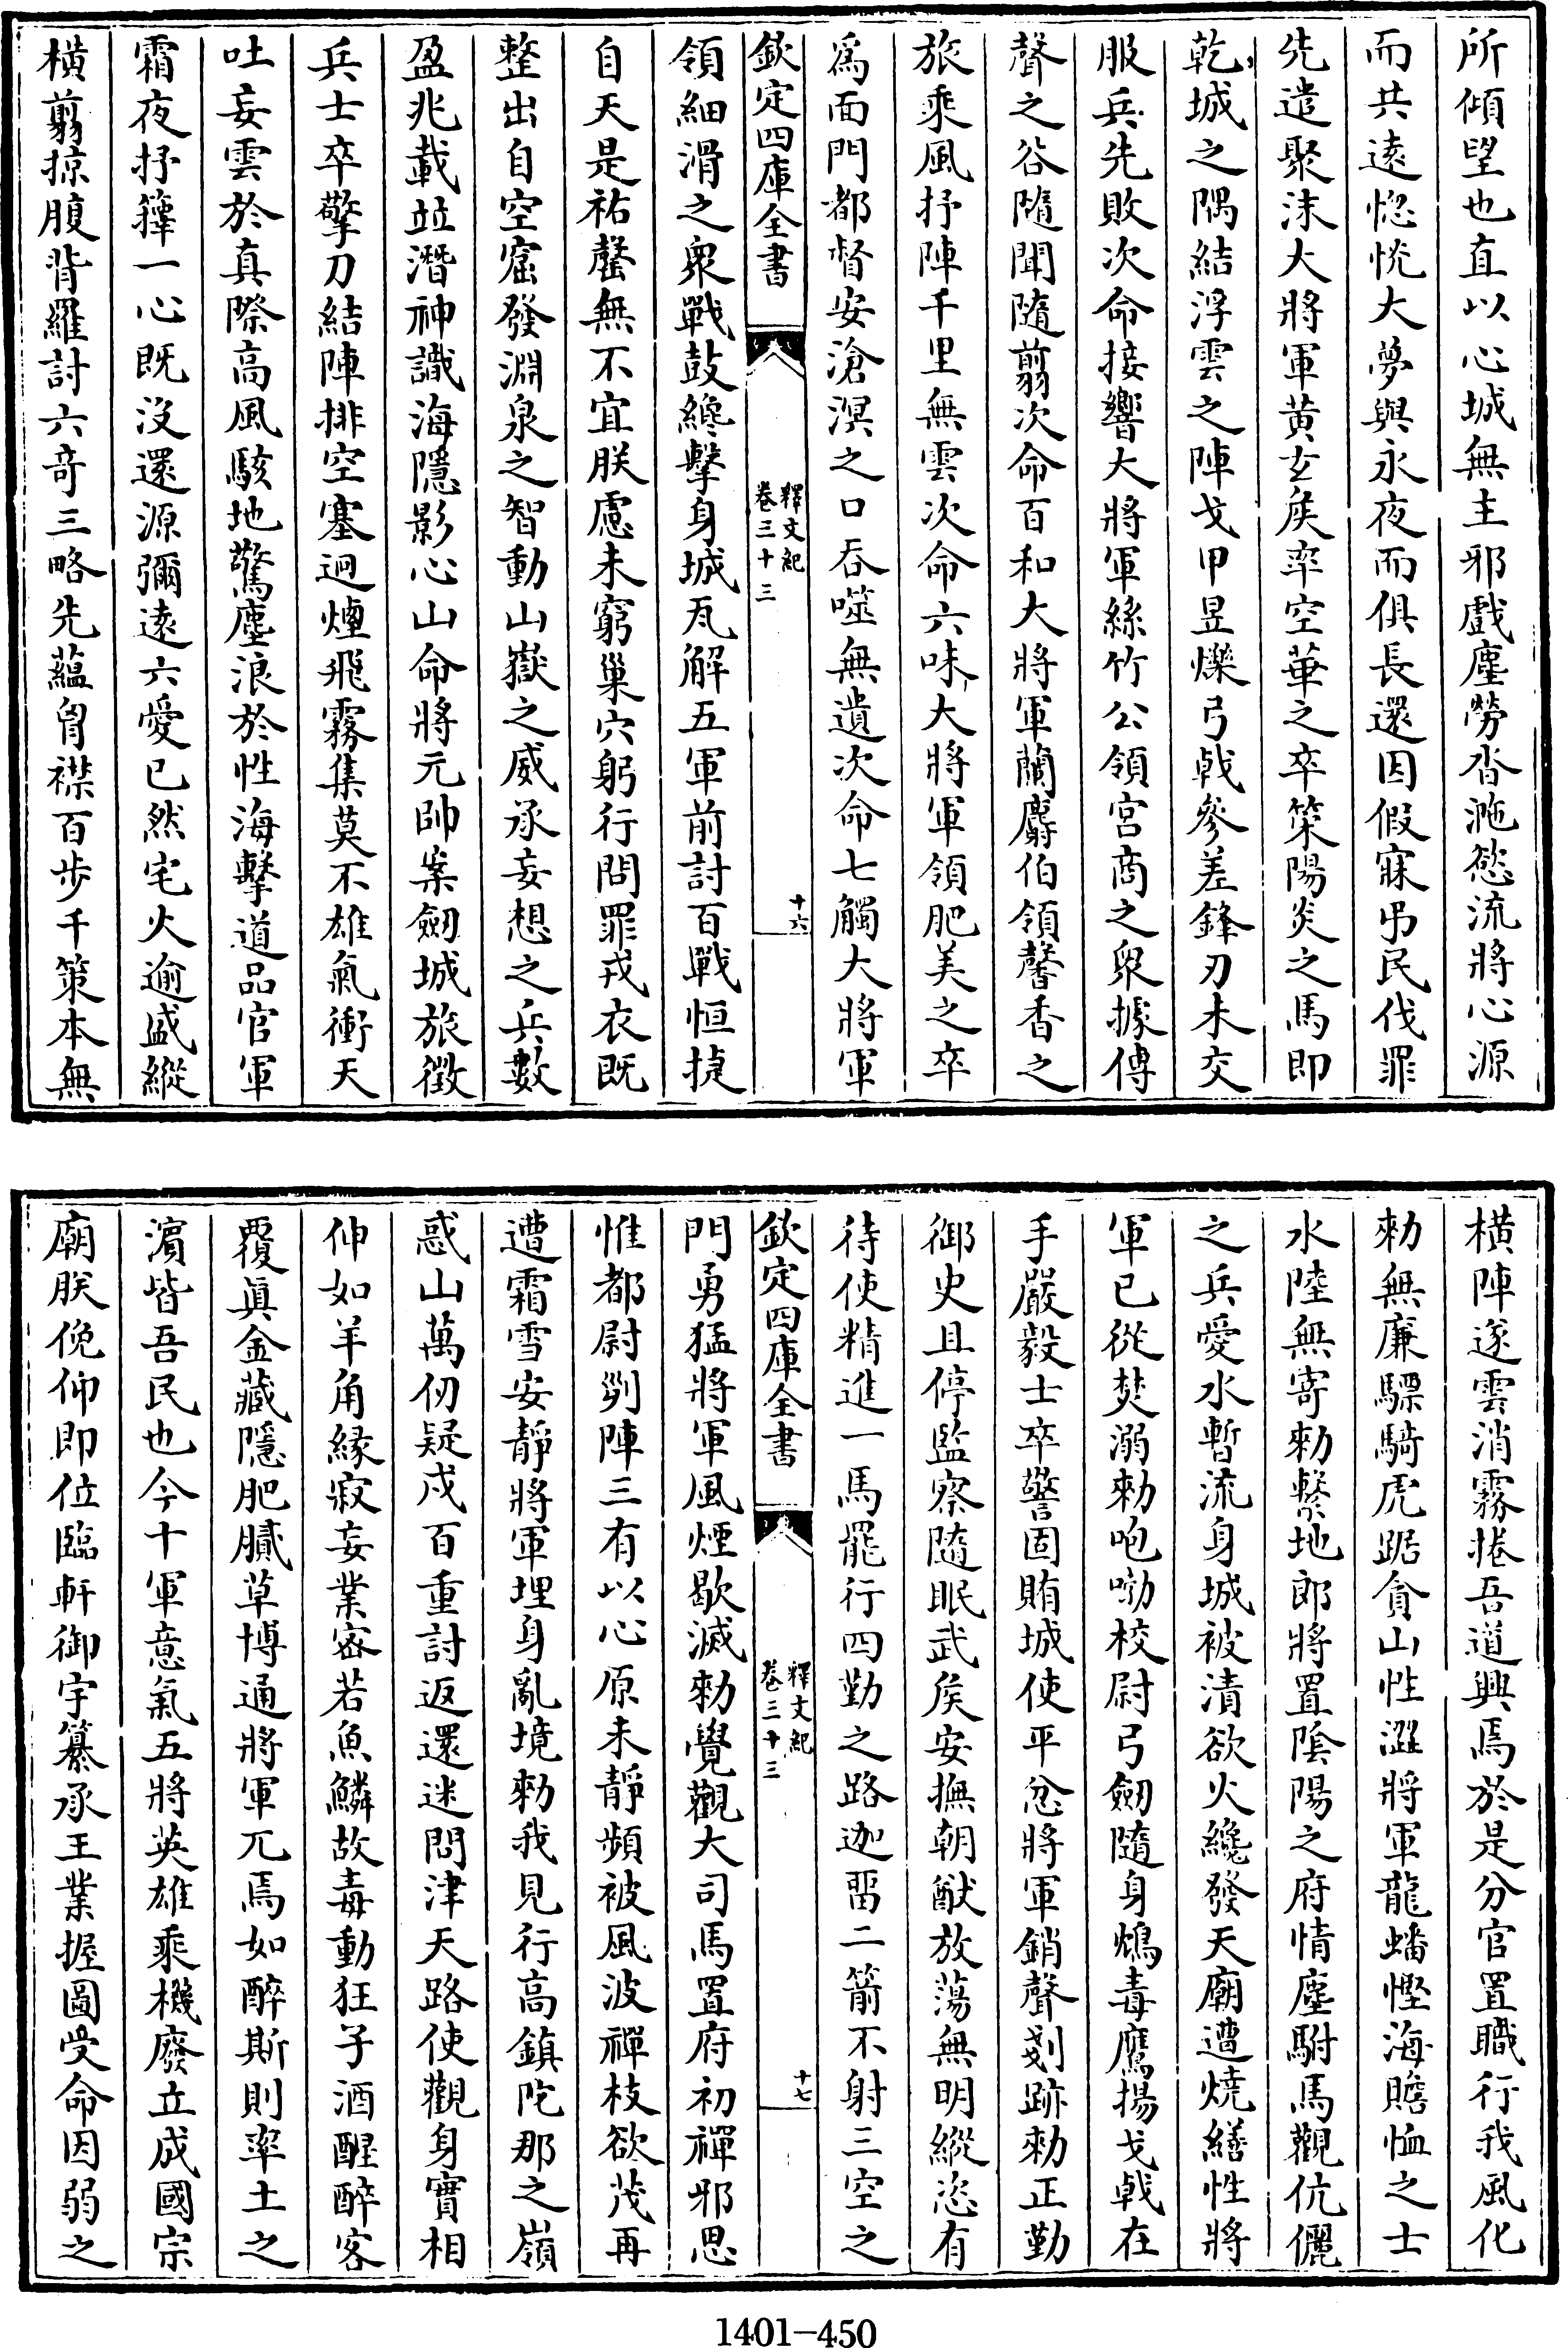 所傾望也直以心城無主邪戲塵勞沓灺慾流將心源
而共遠惚恍大夢與永夜而俱長還因假寐弔民伐罪
先遣聚沫大將軍黄玄矦率空華之卒築陽炎之馬即
乾城之隅結浮雲之陣戈甲昱爍弓㦸參差鋒刃未交
服兵先敗次命接響大將軍絲竹公領宫商之衆據傳
聲之谷隨聞隨翦次命百和大將軍蘭麝伯領馨香之
旅乘風抒陣千里無雲次命六味大將軍領肥美之卒
為面門都督安滄溟之口吞噬無遺次命七觸大將軍
欽定四庫全書
釋文紀
卷三十三
十六
領細滑之衆戰鼓纔擊身城瓦解五軍前討百戰恒捷
自天是祐罄無不宜朕慮未窮巢穴躬行問罪戎衣既
整出自空窟發淵泉之智動山嶽之威承妄想之兵數
盈兆載並潛神識海隱影心山命將元帥案劒城旅徵
兵士卒擎刀結陣排空塞迥煙飛霧集莫不雄氣衝天
吐妄雲於真際高風駭地驚塵浪於性海擊道品官軍
霜夜抒籜一心既没還源彌遠六愛已然宅火逾盛縱
横翦掠腹背羅討六竒三略先蘊胷襟百步千策本無
横陣遂雲消霧捲吾道興焉於是分官置職行我風化
勑無廉驃騎虎踞貪山性澀將軍龍蟠慳海贍恤之士
水陸無寄勑繫地郎將置陰陽之府情塵駙馬觀伉儷
之兵愛水暫流身城被漬欲火纔發天廟遭燒繕性將
軍已從焚溺勑咆勃校尉弓劒隨身鴆毒鷹揚戈㦸在
手嚴毅士卒警固賄城使平忿將軍銷聲剗跡勑正勤
御史且停監察隨眠武矦安撫朝猷放蕩無明縱恣有
待使精進一馬罷行四勤之路迦畱二箭不射三空之
欽定四庫全書
釋文紀
卷三十三
十七
門勇猛將軍風煙歇滅勑覺觀大司馬置府初禪邪思
惟都尉列陣三有以心原未靜頻被風波禪枝欲茂再
遭霜雪安靜將軍埋身亂境勑我見行高鎮陀那之嶺
惑山萬仞疑戍百重討返還迷問津天路使觀身實相
伸如羊角緣寂妄業密若魚鱗故毒動狂子酒醒醉客
覆眞金藏隱肥膩草博通將軍兀焉如醉斯則率土之
濵皆吾民也今十軍意氣五將英雄乘機廢立成國宗
廟朕俛仰即位臨軒御宇纂承王業握圖受命因弱之
1401-450